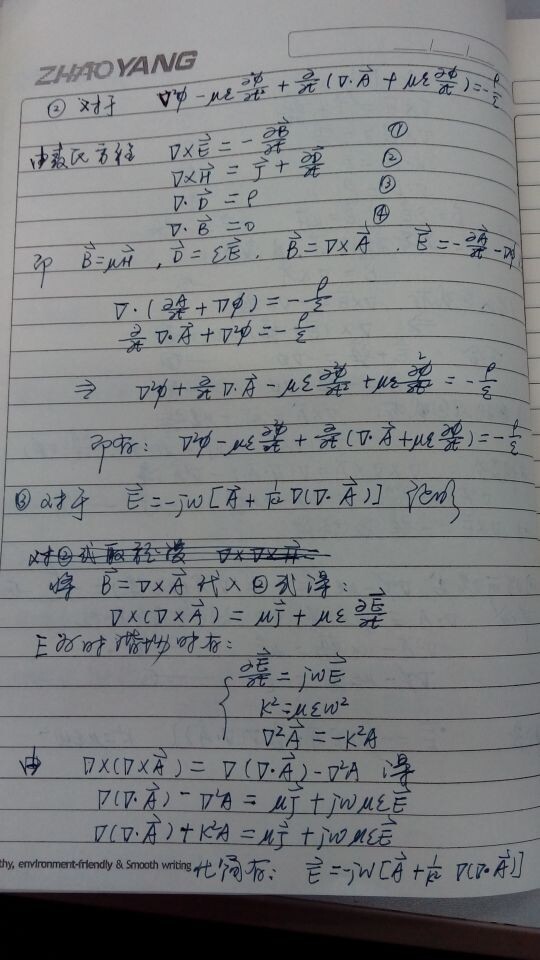 ZHAOYANG
② 对于 ∇²φ - με ∂²φ/∂t² + ∂/∂t (∇·A⃗ + με ∂φ/∂t) = -ρ/ε
由麦氏方程 ∇×E⃗ = -∂B⃗/∂t ①
∇×H⃗ = J⃗ + ∂D⃗/∂t ②
∇·D⃗ = ρ ③
∇·B⃗ = 0 ④
即 B⃗ = μH⃗, D⃗ = εE⃗. B⃗ = ∇×A⃗. E⃗ = -∂A⃗/∂t - ∇φ
∇·(∂A⃗/∂t + ∇φ) = -ρ/ε
∂/∂t ∇·A⃗ + ∇²φ = -ρ/ε
⇒ ∇²φ + ∂/∂t ∇·A⃗ - με ∂²φ/∂t² + με ∂²φ/∂t² = -ρ/ε
即有: ∇²φ - με ∂²φ/∂t² + ∂/∂t (∇·A⃗ + με ∂φ/∂t) = -ρ/ε
③ 对于 E⃗ = -jw[A⃗ + 1/k² ∇(∇·A⃗)] 证明
将 B⃗ = ∇×A⃗ 代入②式得:
∇×(∇×A⃗) = μJ⃗ + με ∂E⃗/∂t
E为时谐场时有:
∂E⃗/∂t = jwE⃗
K² = μεw²
∇²A⃗ = -K²A
由 ∇×(∇×A⃗) = ∇(∇·A⃗) - ∇²A 得
∇(∇·A⃗) - ∇²A = μJ⃗ + jwμεE⃗
∇(∇·A⃗) + K²A = μJ⃗ + jwμεE⃗
thy, environment-friendly & Smooth writing
化简有: E⃗ = -jw[A⃗ + 1/k² ∇(∇·A⃗)]